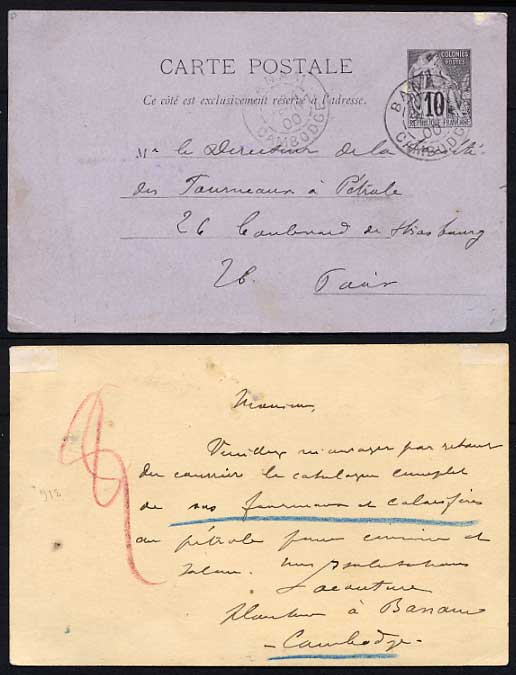 CARTE POSTALE
COLONIES
POSTES
10
RÉPUBLIQUE FRANÇAISE
Ce côté est exclusivement réservé à l'adresse.
BANAM
00
CAMBODGE
CAMBODGE
00
M^r le Directeur de la Société
des Fourneaux à Pétrole
26 Boulevard de Strasbourg
26. Paris
Monsieur,
Veuillez m'envoyer par retour
du courrier le catalogue complet
de vos fourneaux et calorifères
au pétrole pour cuisine et
salon. mes salutations
Planteur à Banam
- Cambodge -
918